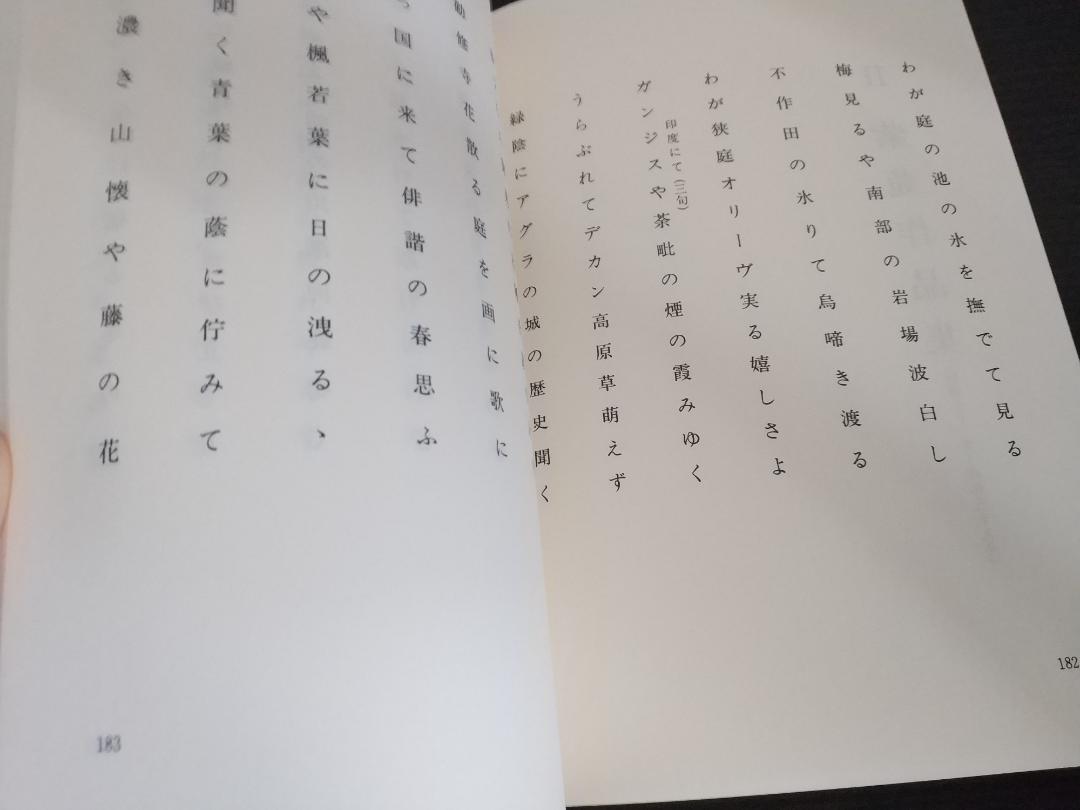 わが庭の池の氷を撫でて見る
梅見るや南部の岩場波白し
不作田の氷りて烏啼き渡る
わが狭庭オリーヴ実る嬉しさよ
印度にて(三句)
ガンジスや茶毗の煙の霞みゆく
うらぶれてデカン高原草萌えず
緑陰にアグラの城の歴史聞く
182
勧修寺花散る庭を画に歌に
国に来て俳諧の春思ふ
や楓若葉に日の洩るゝ
聞く青葉の蔭に佇みて
濃き山懐や藤の花
183